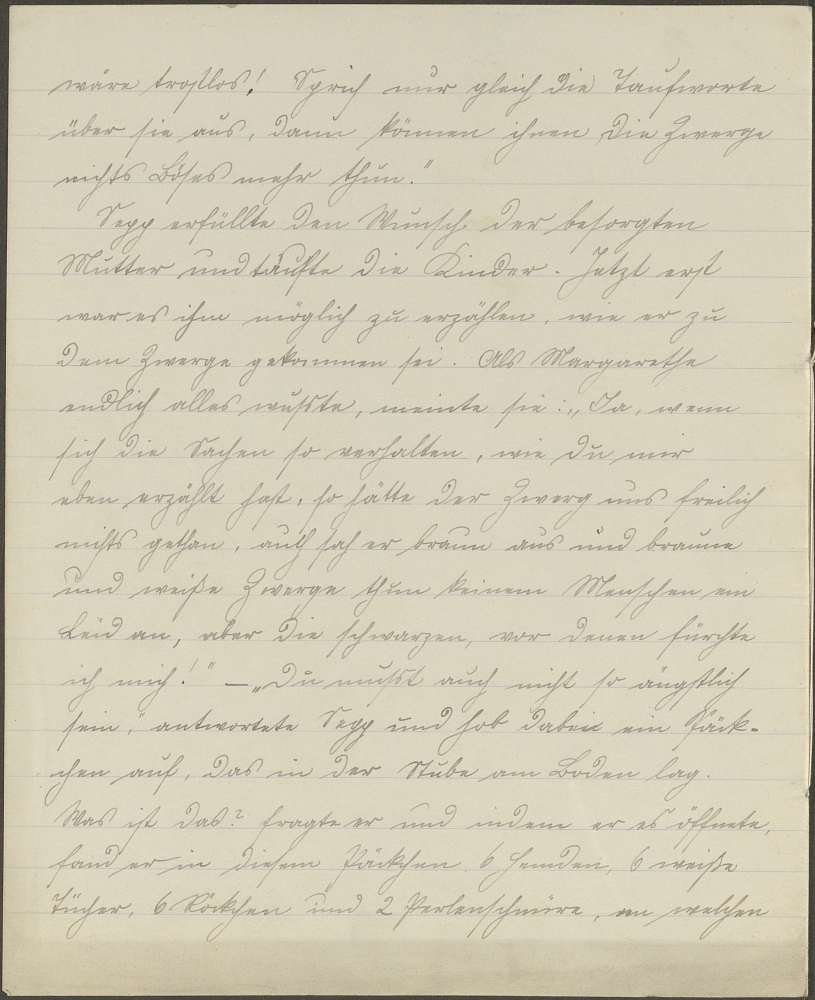 wäre trostlos! Sprich nur gleich die Taufworte
über sie aus, dann können ihnen die Zwerge
nichts Böses mehr thun."
Sepp erfüllte den Wunsch der besorgten
Mutter und täufte die Kinder. Jetzt erst
war es ihm möglich zu erzählen, wie er zu
dem Zwerge gekommen sei. Als Margarethe
endlich alles wußte, meinte sie: „Ja, wenn
sich die Sachen so verhalten, wie du mir
eben erzählt hast, so hätte der Zwerg uns freilich
nichts gethan, auch sah er braun aus und braune
und weiße Zwerge thun keinem Menschen ein
Leid an, aber die schwarzen, vor denen fürchte
ich mich!" – „Du mußt auch nicht so ängstlich
sein," antwortete Sepp und hob dabei ein Päck-
chen auf, das in der Stube am Boden lag.
Was ist das? fragte er und indem er es öffnete,
fand er in diesem Päckchen 6 Hemden, 6 weiße
Tücher, 6 Röckchen und 2 Perlenschnüre, an welchen